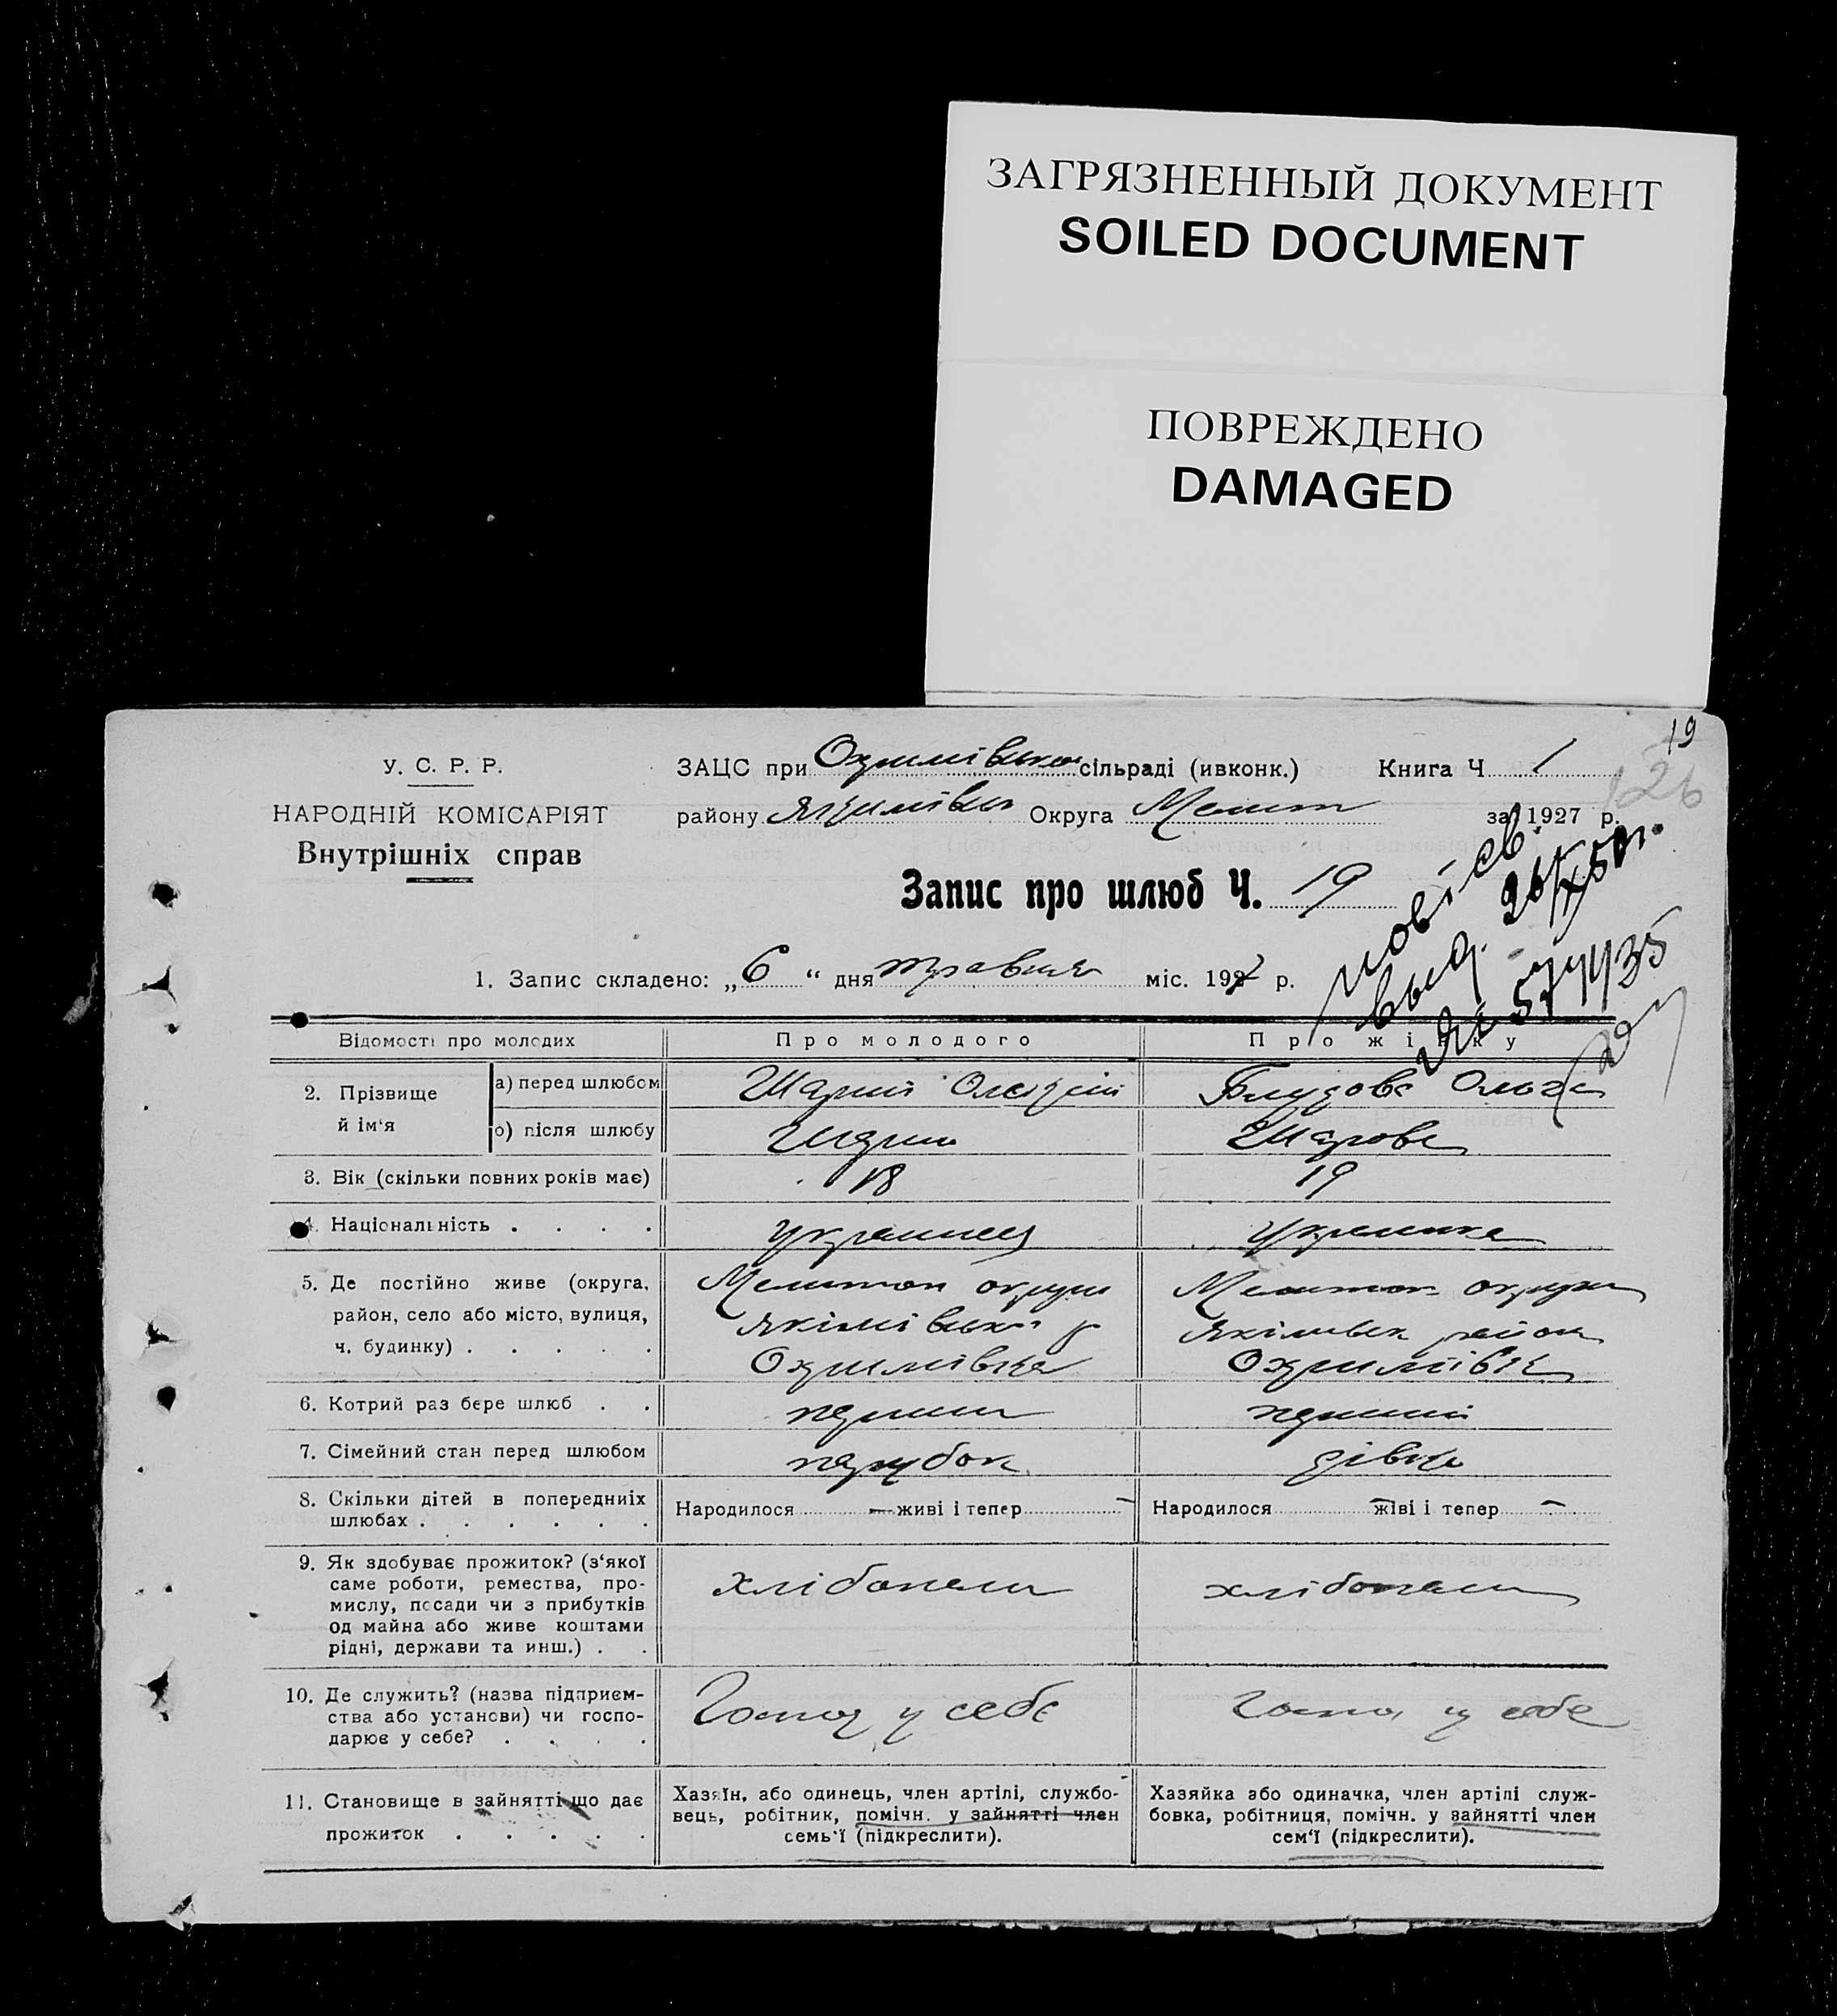 ЗАГРЯЗНЕННЫЙ ДОКУМЕНТ
SOILED DOCUMENT
ПОВРЕЖДЕНО
DAMAGED
19
126
У. С. Р. Р.
НАРОДНІЙ КОМІСАРІЯТ
Внутрішніх справ
ЗАЦС при Охримівській сільраді (ивконк.) Книга Ч. 1
району Якимівськ Округа Мелит за 1927 р.
Запис про шлюб Ч. 19
1. Запис складено: „6“ дня травня міс. 1927 р.
Відомості про молодих
Про молодого
Про жінку
2. Прізвище й ім'я
а) перед шлюбом
Шарий Олексій
Ольга
о) після шлюбу
Шарий
Шарова
3. Вік (скільки повних років має)
18
19
4. Національність . . . .
украинец
украинка
5. Де постійно живе (округа,
район, село або місто, вулиця,
ч. будинку) . . . . .
Мелитоп округи
Якімівськ р
Охримівка
Мелитоп округи
Якімівськ район
Охримівка
6. Котрий раз бере шлюб . .
перший
перший
7. Сімейний стан перед шлюбом
парубок
дівка
8. Скільки дітей в попередниіх
шлюбах . . . . . .
Народилося — живі і тепер —
Народилося — жіві і тепер —
9. Як здобуває прожиток? (з'якої
саме роботи, ремества, про-
мислу, посади чи з прибутків
од майна або живе коштами
рідні, держави та инш.) . .
хлібопаш
хлібопаш
10. Де служить? (назва підприєм-
ства або установи) чи госпо-
дарює у себе? . . . .
у себе
у себе
11. Становище в зайнятті що дає
прожиток . . . . .
Хазяїн, або одинець, член артілі, службо-
вець, робітник, помічн. у зайнятті член
семь'ї (підкреслити).
Хазяйка або одиначка, член артілі служ-
бовка, робітниця, помічн. у зайнятті член
сем'ї (підкреслити).